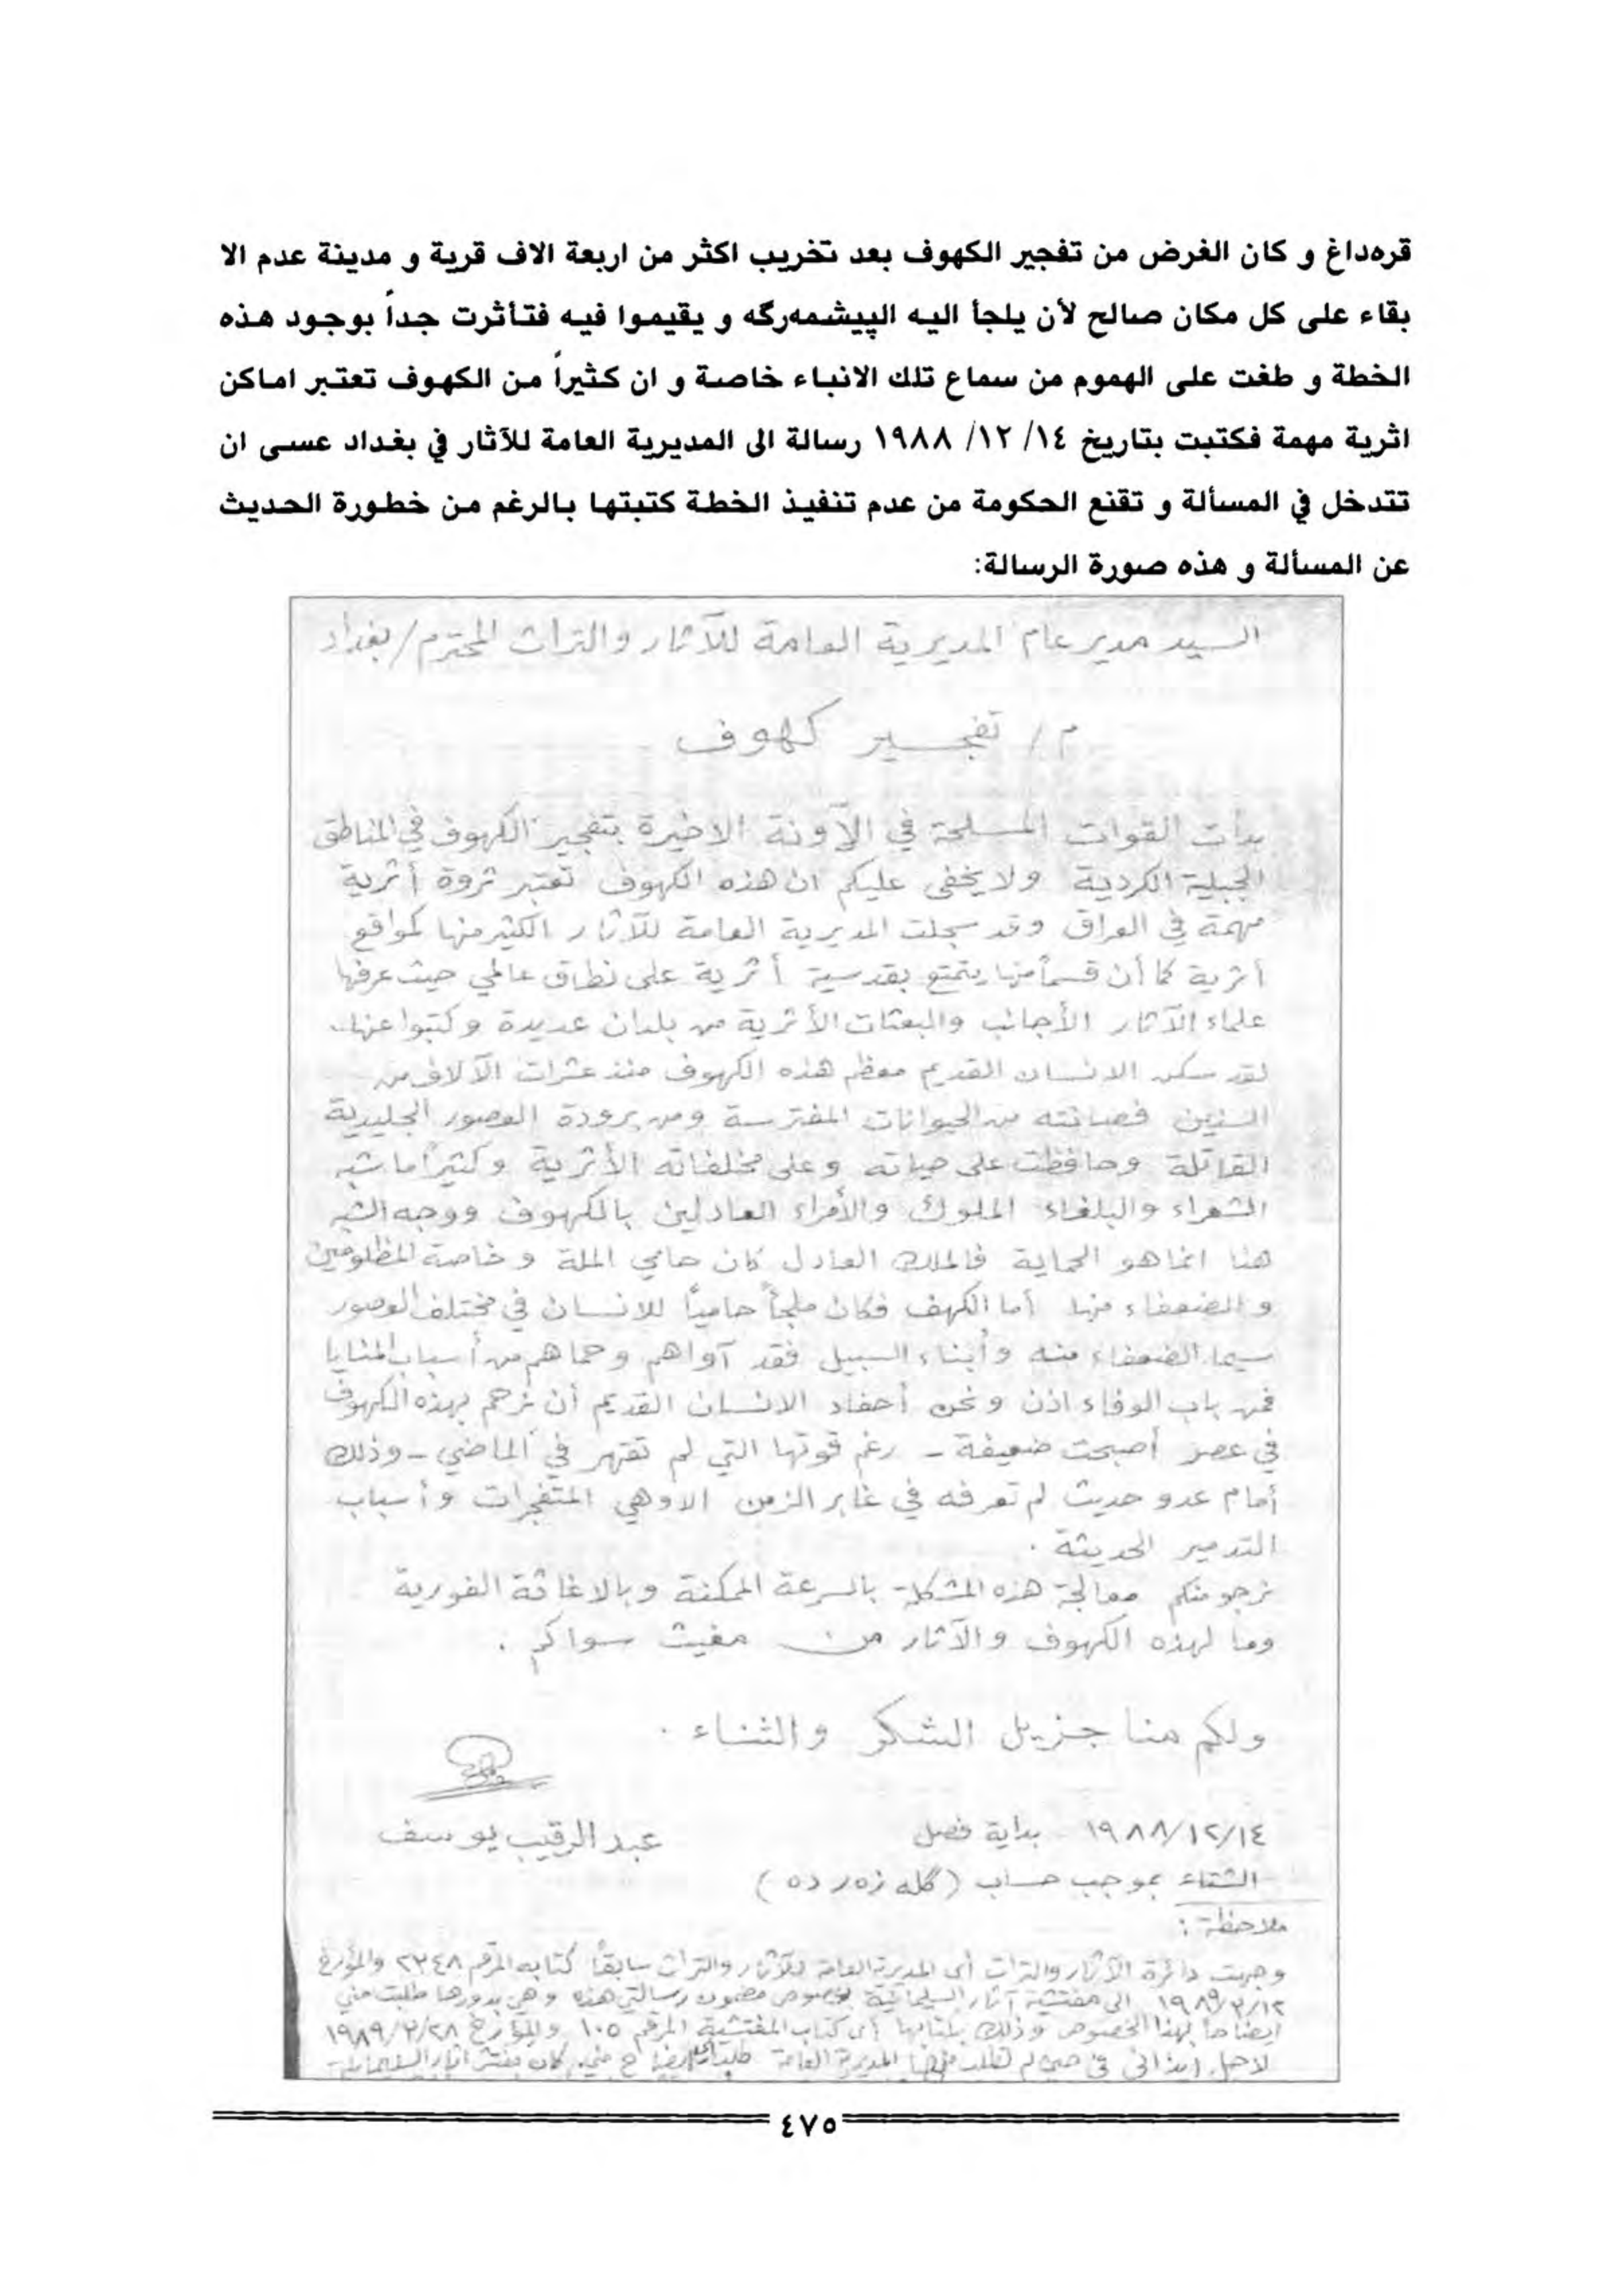 قره‌داغ و كان الغرض من تفجير الكهوف بعد تخريب اكثر من اربعة الاف قرية و مدينة عدم الا
بقاء على كل مكان صالح لأن يلجأ اليه الپيشمه‌رگه و يقيموا فيه فتأثرت جداً بوجود هذه
الخطة و طغت على الهموم من سماع تلك الانباء خاصة و ان كثيراً من الكهوف تعتبر اماكن
اثرية مهمة فكتبت بتاريخ ١٤/ ١٢/ ١٩٨٨ رسالة الى المديرية العامة للآثار في بغداد عسى ان
تتدخل في المسألة و تقنع الحكومة من عدم تنفيذ الخطة كتبتها بالرغم من خطورة الحديث
عن المسألة و هذه صورة الرسالة:
السيد مدير عام المديرية العامة للآثار والتراث المحترم/بغداد
م/ تفجير كهوف
بدأت القوات المسلحة في الآونة الاخيرة بتفجير الكهوف في المناطق
الجبلية الكردية ولا يخفى عليكم ان هذه الكهوف تعتبر ثروة أثرية
مهمة في العراق وقد سجلت المديرية العامة للآثار الكثير منها كمواقع
أثرية كما أن قسماً منها يتمتع بقدسية أثرية على نطاق عالمي حيث عرفها
علماء الآثار الأجانب والبعثات الأثرية من بلدان عديدة وكتبوا عنها.
لقد سكن الانسان القديم معظم هذه الكهوف منذ عشرات الآلاف من
السنين فصانته من الحيوانات المفترسة ومن برودة العصور الجليدية
القاتلة وحافظت على حياته وعلى مخلفاته الأثرية وكثيراً ما شبه
الشعراء والبلغاء الملوك والأمراء العادلين بالكهوف ووجه الشبه
هنا انما هو الحماية فالملك العادل كان حامي الملة وخاصة المظلومين
والضعفاء منها أما الكهف فكان ملجأ حامياً للانسان في مختلف العصور
سيما الضعفاء منه وأبناء السبيل فقد آواهم وحماهم من أسباب المنايا
فمن باب الوفاء اذن ونحن أحفاد الانسان القديم أن نرحم بهذه الكهوف
في عصر أصبحت ضعيفة - رغم قوتها التي لم تقهر في الماضي - وذلك
أمام عدو حديث لم تعرفه في غابر الزمن الا وهي المتفجرات وأسباب
التدمير الحديثة .
نرجو منكم معالجة هذه المشكلة بالسرعة الممكنة وبالاغاثة الفورية
وما لهذه الكهوف والآثار من مغيث سواكم .
ولكم منا جزيل الشكر والثناء .
١٩٨٨/١٢/١٤ بداية فصل
عبد الرقيب يوسف
الشتاء بموجب حساب (گله زه‌رده)
ملاحظة :
وجهت دائرة الآثار والتراث أي المديرية العامة للآثار والتراث سابقاً كتابه المرقم ٢٣٤٨ والمؤرخ
١٩٨٩/٣/١٢ الى مفتشية آثار السليمانية بخصوص مضمون رسالتي هذه وهي بدورها طلبت مني
ايضاحاً لهذا الخصوص وذلك بكتابها أي كتاب المفتشية المرقم ١٠٥ والمؤرخ ١٩٨٩/٣/٢٨
لاجل ايذائي في حين لم تطلب منها المديرية العامة طلب ايضاح مني. كان مفتش آثار السليمانية
٤٧٥